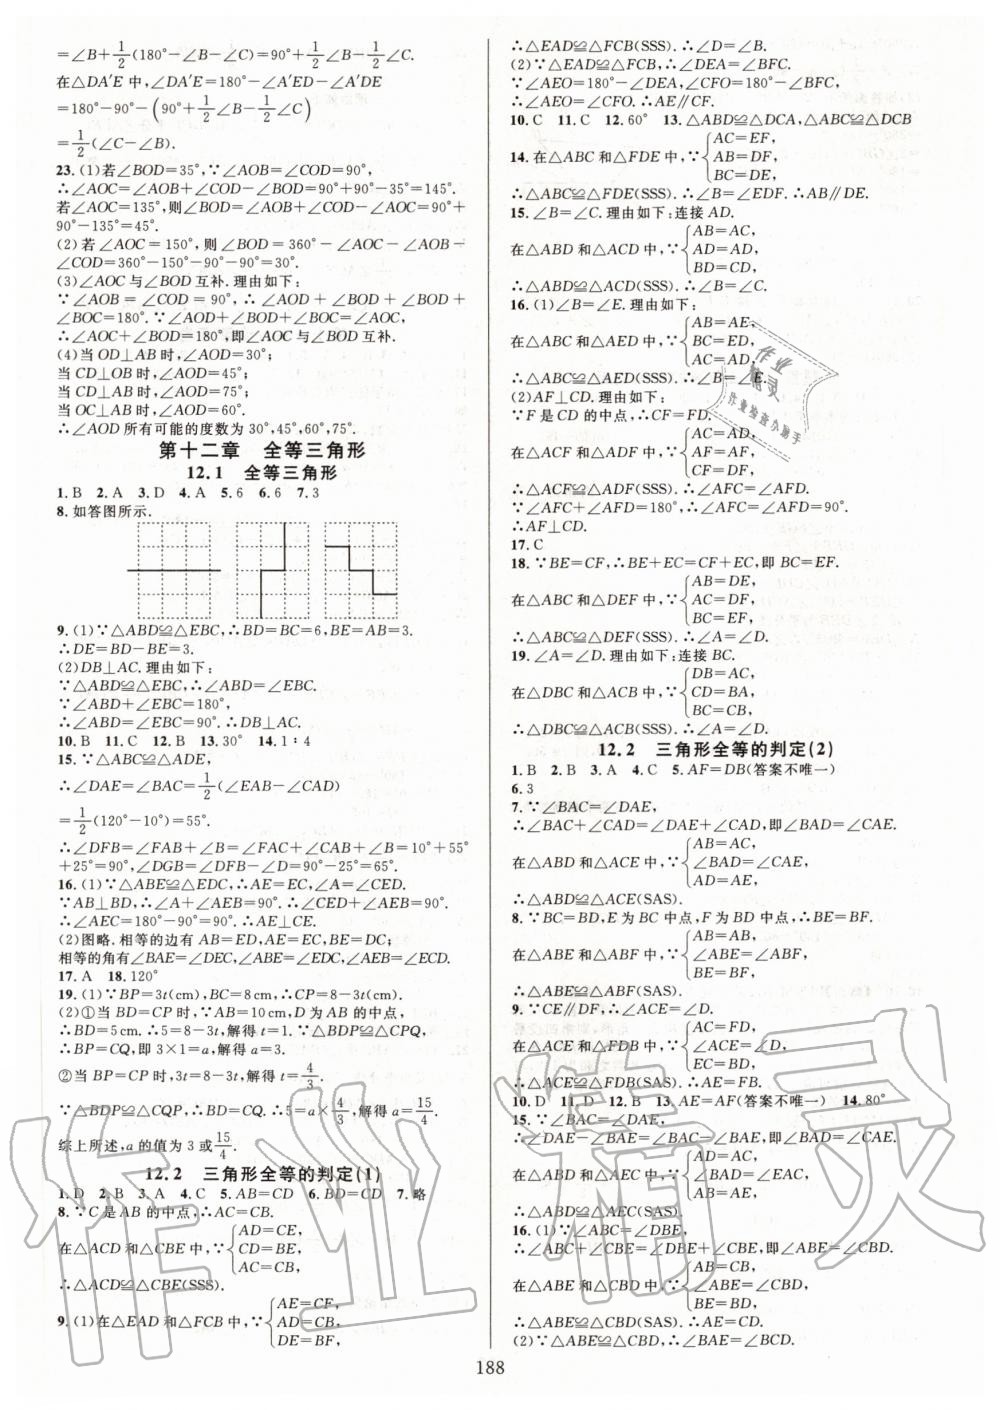 =∠B+1/2(180°-∠B-∠C)=90°+1/2∠B-1/2∠C.
在△DA′E中,∠DA′E=180°-∠A′ED-∠A′DE
=180°-90°-(90°+1/2∠B-1/2∠C)
=1/2(∠C-∠B).
23.(1)若∠BOD=35°,∵∠AOB=∠COD=90°,
∴∠AOC=∠AOB+∠COD-∠BOD=90°+90°-35°=145°.
若∠AOC=135°,则∠BOD=∠AOB+∠COD-∠AOC=90°+
90°-135°=45°.
(2)若∠AOC=150°,则∠BOD=360°-∠AOC-∠AOB-
∠COD=360°-150°-90°-90°=30°.
(3)∠AOC与∠BOD互补.理由如下:
∵∠AOB=∠COD=90°,∴∠AOD+∠BOD+∠BOD+
∠BOC=180°.∵∠AOD+∠BOD+∠BOC=∠AOC,
∴∠AOC+∠BOD=180°,即∠AOC与∠BOD互补.
(4)当OD⊥AB时,∠AOD=30°;
当CD⊥OB时,∠AOD=45°;
当CD⊥AB时,∠AOD=75°;
当OC⊥AB时,∠AOD=60°.
∴∠AOD所有可能的度数为30°,45°,60°,75°.
第十二章 全等三角形
12.1 全等三角形
1.B 2.A 3.D 4.A 5.6 6.6 7.3
8.如答图所示.
9.(1)∵△ABD≌△EBC,∴BD=BC=6,BE=AB=3.
∴DE=BD-BE=3.
(2)DB⊥AC.理由如下:
∵△ABD≌△EBC,∴∠ABD=∠EBC.
∵∠ABD+∠EBC=180°,
∴∠ABD=∠EBC=90°.∴DB⊥AC.
10.B 11.C 12.B 13.30° 14.1∶4
15.∵△ABC≌△ADE,
∴∠DAE=∠BAC=1/2(∠EAB-∠CAD)
=1/2(120°-10°)=55°.
∴∠DFB=∠FAB+∠B=∠FAC+∠CAB+∠B=10°+55°
+25°=90°,∠DGB=∠DFB-∠D=90°-25°=65°.
16.(1)∵△ABE≌△EDC,∴AE=EC,∠A=∠CED.
∵AB⊥BD,∴∠A+∠AEB=90°.∴∠CED+∠AEB=90°.
∴∠AEC=180°-90°=90°.∴AE⊥CE.
(2)图略.相等的边有AB=ED,AE=EC,BE=DC;
相等的角有∠BAE=∠DEC,∠ABE=∠EDC,∠AEB=∠ECD.
17.A 18.120°
19.(1)∵BP=3t(cm),BC=8cm,∴PC=(8-3t)cm.
(2)①当BD=CP时,∵AB=10cm,D为AB的中点,
∴BD=5cm.∴5=8-3t,解得t=1.∵△BDP≌△CPQ,
∴BP=CQ,即3×1=a,解得a=3.
②当BP=CP时,3t=8-3t,解得t=4/3.
∵△BDP≌△CQP,∴BD=CQ.∴5=a×4/3,解得a=15/4.
综上所述,a的值为3或15/4.
12.2 三角形全等的判定(1)
1.D 2.B 3.A 4.C 5.AB=CD 6.BD=CD 7.略
8.∵C是AB的中点,∴AC=CB.
在△ACD和△CBE中,∵{AD=CE,
CD=BE,
AC=CB,
∴△ACD≌△CBE(SSS).
9.(1)在△EAD和△FCB中,∵{AE=CF,
AD=CB,
DE=BF,
∴△EAD≌△FCB(SSS).∴∠D=∠B.
(2)∵△EAD≌△FCB,∴∠DEA=∠BFC.
∵∠AEO=180°-∠DEA,∠CFO=180°-∠BFC,
∴∠AEO=∠CFO.∴AE∥CF.
10.C 11.C 12.60° 13.△ABD≌△DCA,△ABC≌△DCB
14.在△ABC和△FDE中,∵{AC=EF,
AB=DF,
BC=DE,
∴△ABC≌△FDE(SSS).∴∠B=∠EDF.∴AB∥DE.
15.∠B=∠C.理由如下:连接AD.
在△ABD和△ACD中,∵{AB=AC,
AD=AD,
BD=CD,
∴△ABD≌△ACD(SSS).∴∠B=∠C.
16.(1)∠B=∠E.理由如下:
在△ABC和△AED中,∵{AB=AE,
BC=ED,
AC=AD,
∴△ABC≌△AED(SSS).∴∠B=∠E.
(2)AF⊥CD.理由如下:
∵F是CD的中点,∴CF=FD.
在△ACF和△ADF中,∵{AC=AD,
AF=AF,
CF=DF,
∴△ACF≌△ADF(SSS).∴∠AFC=∠AFD.
∵∠AFC+∠AFD=180°,∴∠AFC=∠AFD=90°.
∴AF⊥CD.
17.C
18.∵BE=CF,∴BE+EC=CF+EC,即BC=EF.
在△ABC和△DEF中,∵{AB=DE,
AC=DF,
BC=EF,
∴△ABC≌△DEF(SSS).∴∠A=∠D.
19.∠A=∠D.理由如下:连接BC.
在△DBC和△ACB中,∵{DB=AC,
CD=BA,
BC=CB,
∴△DBC≌△ACB(SSS).∴∠A=∠D.
12.2 三角形全等的判定(2)
1.B 2.B 3.A 4.C 5.AF=DB(答案不唯一)
6.3
7.∵∠BAC=∠DAE,
∴∠BAC+∠CAD=∠DAE+∠CAD,即∠BAD=∠CAE.
在△ABD和△ACE中,∵{AB=AC,
∠BAD=∠CAE,
AD=AE,
∴△ABD≌△ACE(SAS).
8.∵BC=BD,E为BC中点,F为BD中点,∴BE=BF.
在△ABE和△ABF中,∵{AB=AB,
∠ABE=∠ABF,
BE=BF,
∴△ABE≌△ABF(SAS).
9.∵CE∥DF,∴∠ACE=∠D.
在△ACE和△FDB中,∵{AC=FD,
∠ACE=∠D,
EC=BD,
∴△ACE≌△FDB(SAS).∴AE=FB.
10.D 11.D 12.B 13.AE=AF(答案不唯一) 14.80°
15.∵∠BAC=∠DAE,
∴∠DAE-∠BAE=∠BAC-∠BAE,即∠BAD=∠EAC.
在△ABD和△AEC中,∵{AB=AE,
∠BAD=∠EAC,
AD=AC,
∴△ABD≌△AEC(SAS).
16.(1)∵∠ABC=∠DBE,
∴∠ABC+∠CBE=∠DBE+∠CBE,即∠ABE=∠CBD.
在△ABE和△CBD中,∵{AB=CB,
∠ABE=∠CBD,
BE=BD,
∴△ABE≌△CBD(SAS).
(2)∵△ABE≌△CBD,∴∠BAE=∠BCD.
188
作业精灵
作业精灵
作业检查小助手